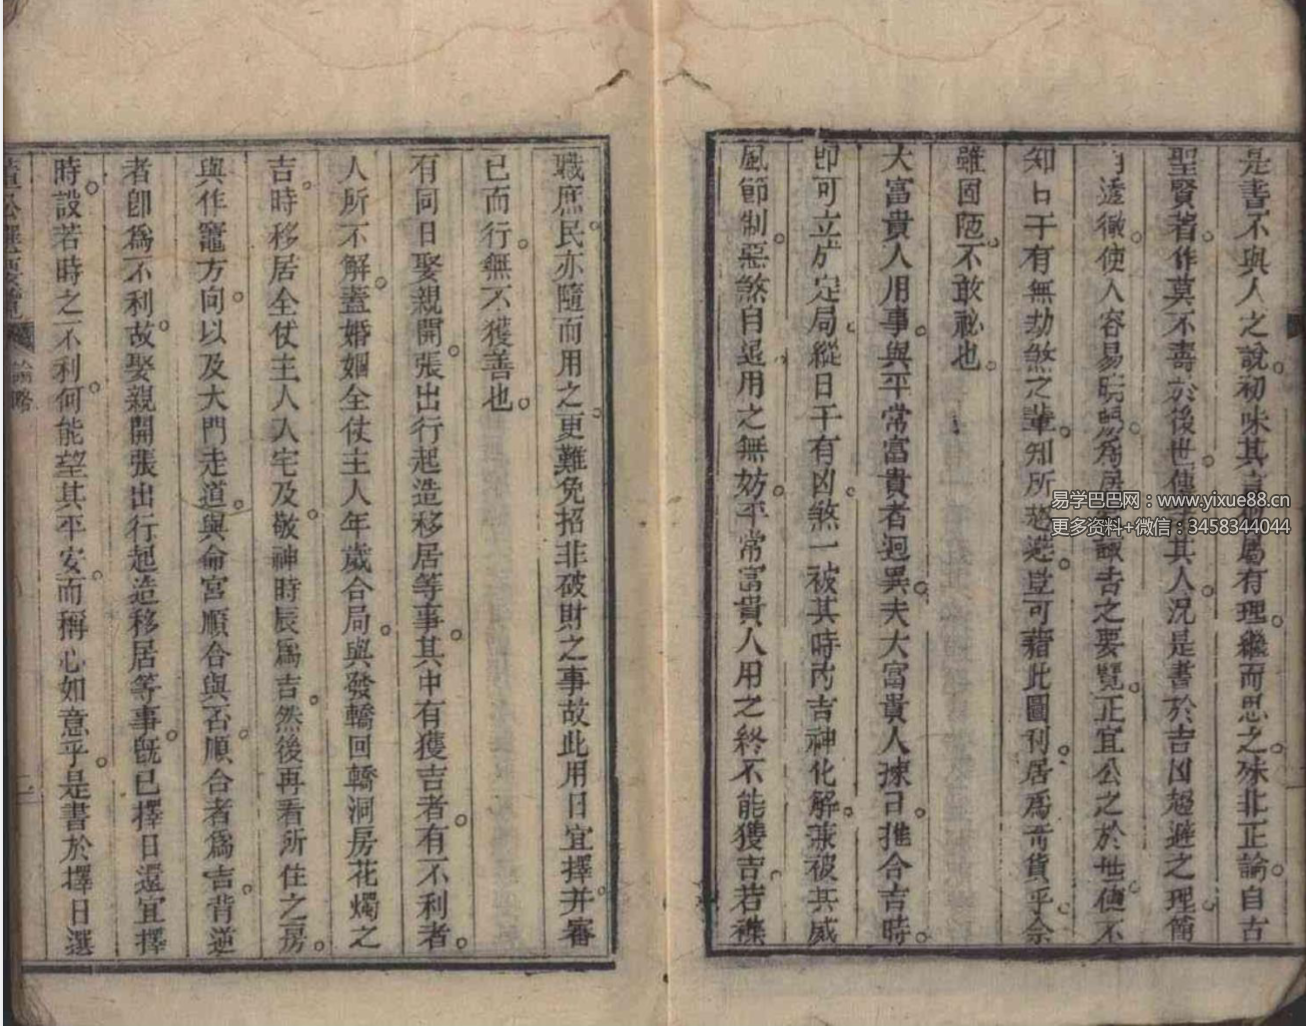 是書不與人之說初味其言似屬有理繼而思之殊非正論自古
聖賢著作莫不壽於後世傳其人況是書於吉凶趨避之理簡
透徹使人容易曉為居諏吉之要覽正宜公之於世使不
知日干有無劫煞之輩知所趨避豈可藉此圖刊居為奇貨乎余
雖固陋不敢祕也
大富貴人用事與平常富貴者迥異夫大富貴人揀日推合吉時
即可立片定局縱日干有凶煞一被其時內吉神化解兼被其威
風節制惡煞自退用之無妨平常富貴人用之終不能獲吉若襍
職庶民亦隨而用之更難免招非破財之事故此用日宜擇并審
已而行無不獲善也
有同日娶親開張出行起造移居等事其中有獲吉者有不利者
人所不解蓋婚姻全仗主人年歲合局與發轎回轎洞房花燭之
吉時移居全仗主人入宅及敬神時辰爲吉然後再看所住之房
與作竈方向以及大門走道與命宮順合與否順合者爲吉背逆
者卽爲不利故娶親開張出行起造移居等事旣已擇日還宜擇
時設若時之不利何能望其平安而稱心如意乎是書於擇日選
董公選要覽
論略
二
易学巴巴网：www.yixue88.cn
更多资料+微信：3458344044